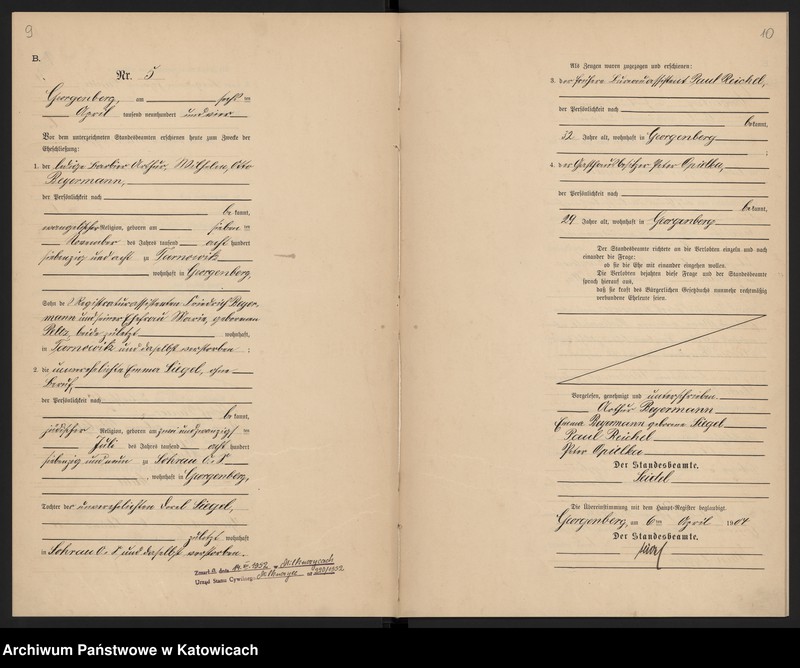 9
B.
Nr. 5
Georgenberg, am sechsten
April tausend neunhundert und vier
Vor dem unterzeichneten Standesbeamten erschienen heute zum Zwecke der
Eheschließung:
1. der ledige Barbier Arthur, Wilhelm, Otto
Regermann,
der Persönlichkeit nach
be kannt,
evangelischer Religion, geboren am sieben ten
November des Jahres tausend acht hundert
siebenzig und acht zu Tarnowitz
, wohnhaft in Georgenberg,
Sohn des Registraturassistenten Friedrich Reger-
mann und seiner Ehefrau Maria, geborenen
Peltz, beide zuletzt wohnhaft,
in Tarnowitz und daselbst verstorben ;
2. die unverehelichte Emma Siegel, ohne
Beruf,
der Persönlichkeit nach
be kannt,
jüdischer Religion, geboren am zwei und zwanzigsten
Juli des Jahres tausend acht hundert
siebenzig und neun zu Sohrau O. S.
, wohnhaft in Georgenberg,
Tochter der unverehelichten Dorel Siegel,
zuletzt wohnhaft
in Sohrau O. S. und daselbst verstorben.
Zmarł a dnia 14. VI. 1952 w
Urząd Stanu Cywilnego
10
Als Zeugen waren zugezogen und erschienen:
3. der frühere Bureauassistent Paul Reichel,
der Persönlichkeit nach
bekannt,
22 Jahre alt, wohnhaft in Georgenberg
;
4. der Gasthausbesitzer Peter Opielka,
der Persönlichkeit nach
be kannt,
29 Jahre alt, wohnhaft in Georgenberg
Der Standesbeamte richtete an die Verlobten einzeln und nach
einander die Frage:
ob sie die Ehe mit einander eingehen wollen.
Die Verlobten bejahten diese Frage und der Standesbeamte
sprach hierauf aus,
daß sie kraft des Bürgerlichen Gesetzbuchs nunmehr rechtmäßig
verbundene Eheleute seien.
Vorgelesen, genehmigt und unterschrieben
Arthur Regermann
Emma Regermann geborene Siegel
Paul Reichel
Peter Opielka
Der Standesbeamte.
Seidel
Die Übereinstimmung mit dem Haupt-Register beglaubigt.
Georgenberg, am 6ten April 1904
Der Standesbeamte.
Seidel
Archiwum Państwowe w Katowicach